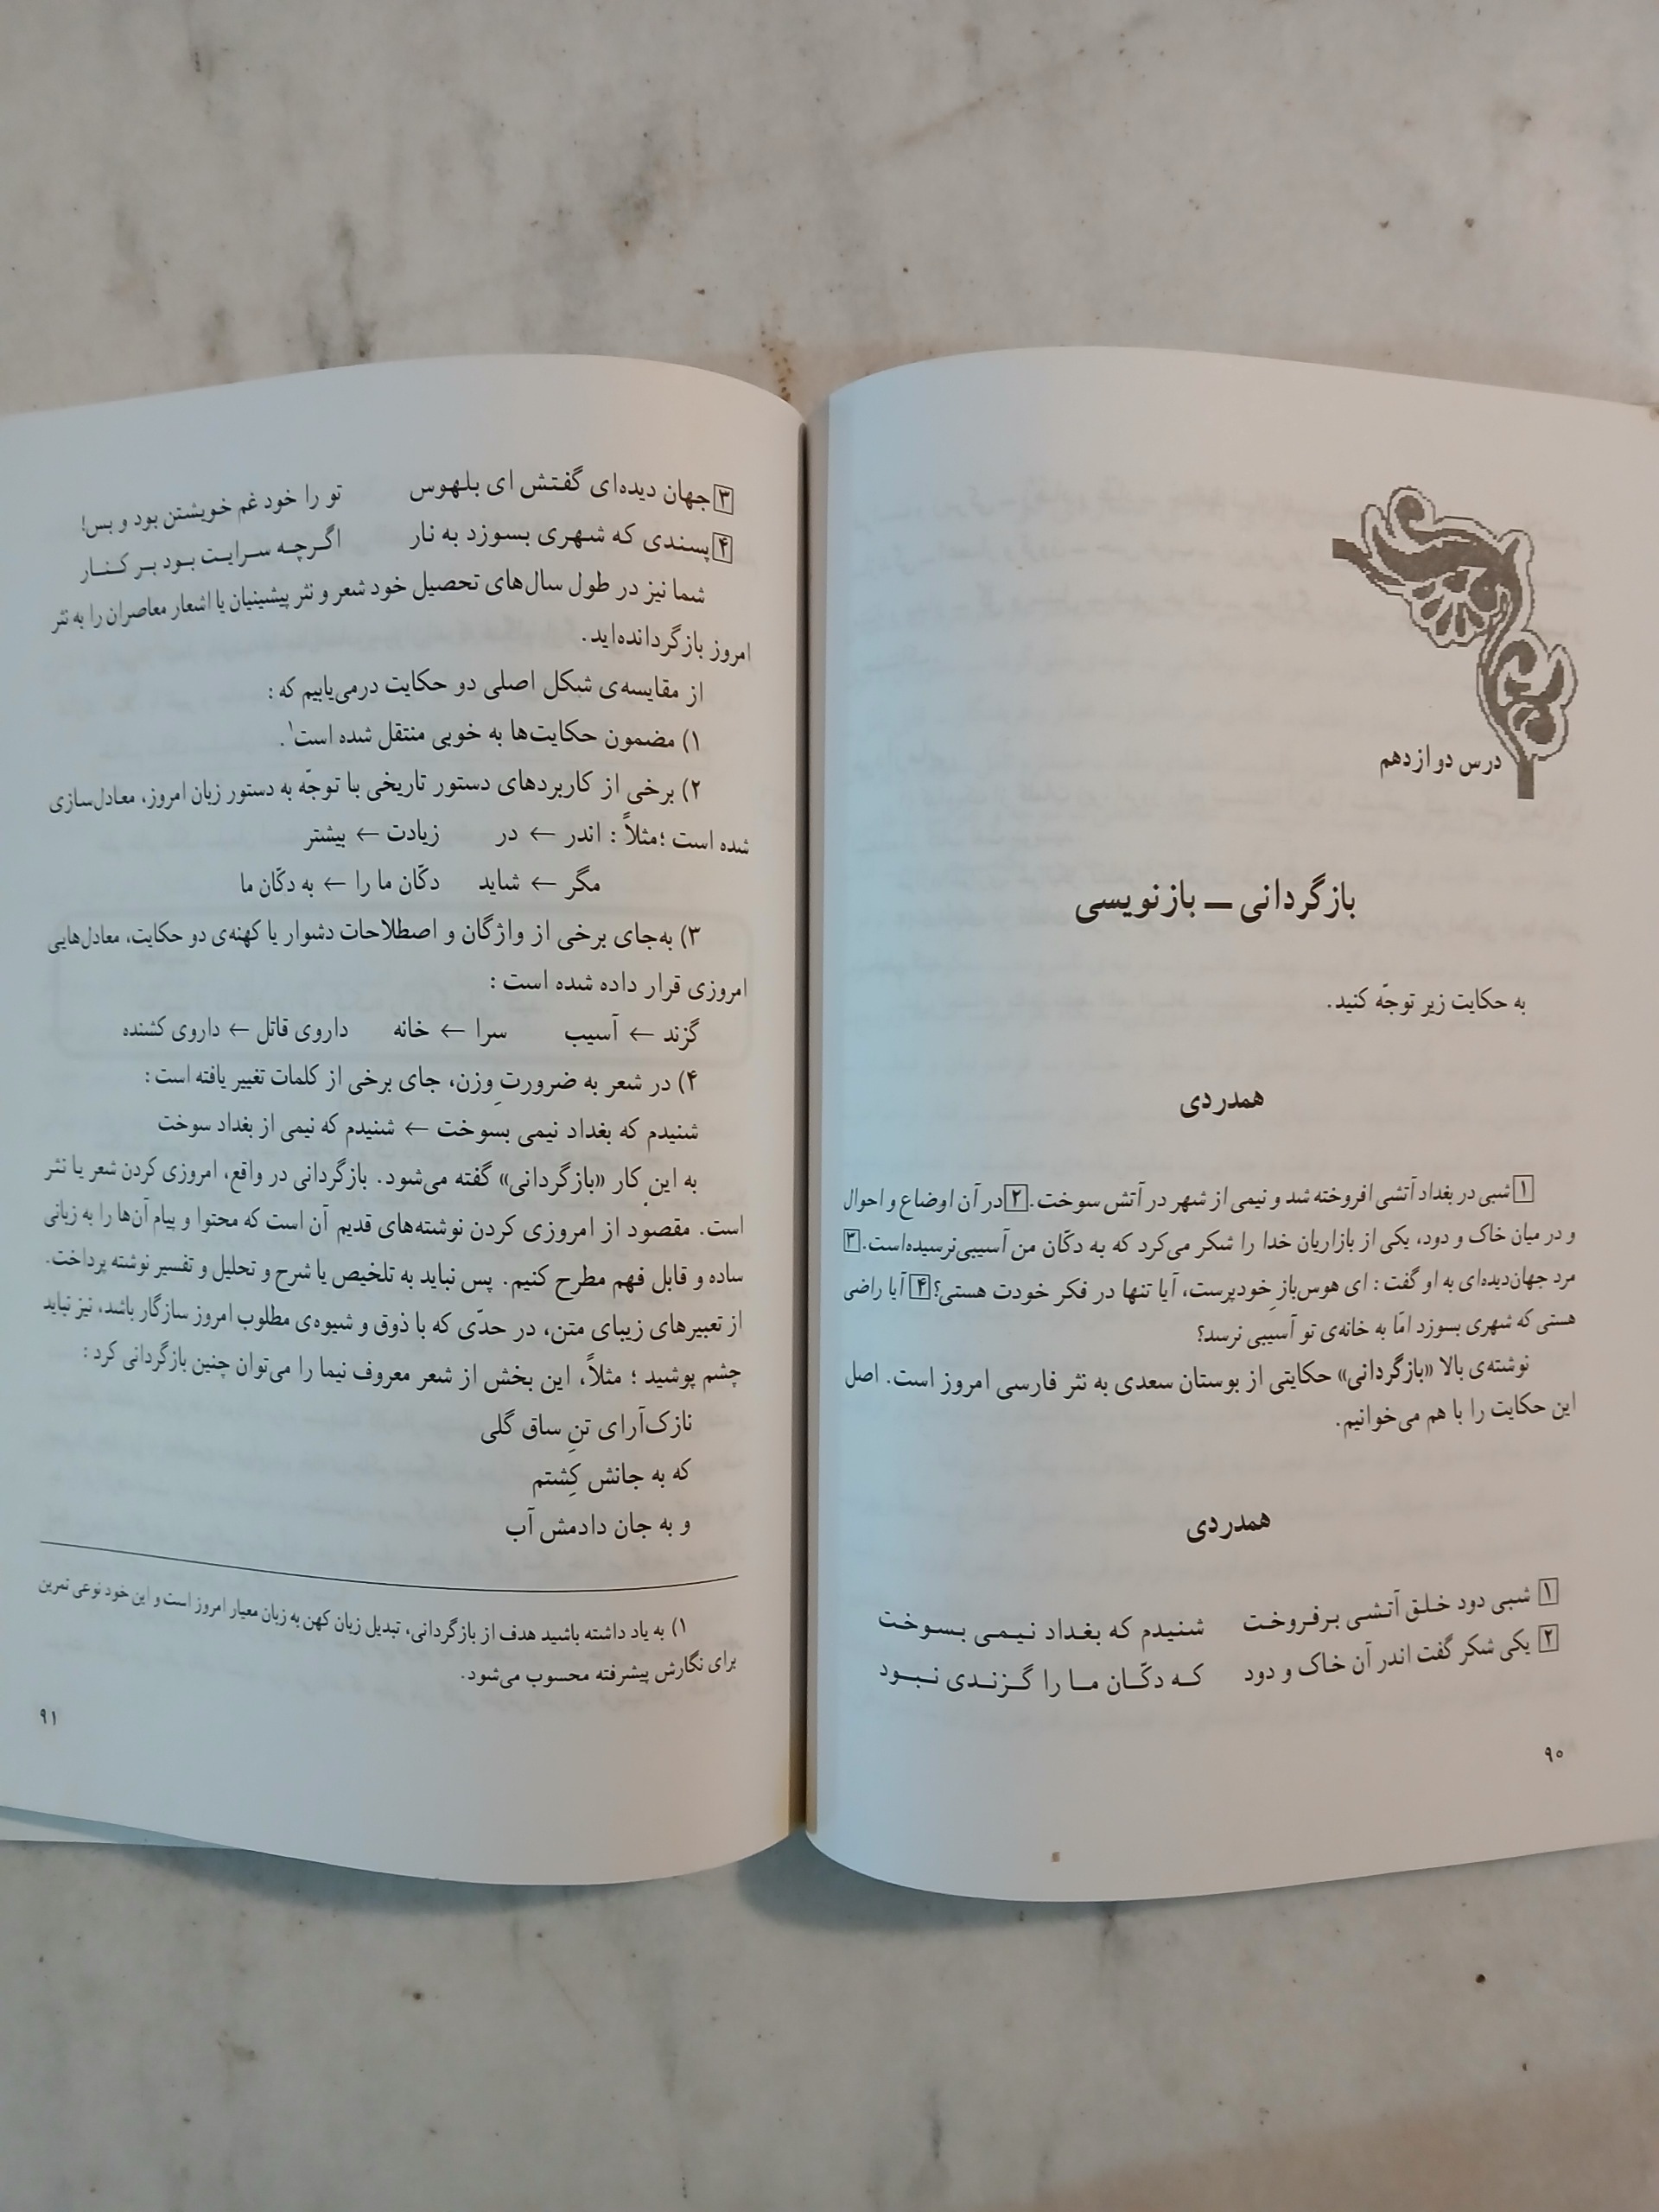 درس دوازدهم
بازگردانی ــ بازنویسی
به حکایت زیر توجّه کنید.
همدردی
۱ شبی در بغداد آتشی افروخته شد و نیمی از شهر در آتش سوخت. ۲ در آن اوضاع و احوال
و در میان خاک و دود، یکی از بازاریان خدا را شکر می‌کرد که به دکّان من آسیبی نرسیده‌است. ۳
مرد جهان‌دیده‌ای به او گفت : ای هوس‌بازِ خودپرست، آیا تنها در فکر خودت هستی؟ ۴ آیا راضی
هستی که شهری بسوزد امّا به خانه‌ی تو آسیبی نرسد؟
نوشته‌ی بالا «بازگردانی» حکایتی از بوستان سعدی به نثر فارسی امروز است. اصل
این حکایت را با هم می‌خوانیم.
همدردی
۱ شبی دود خلق آتشی برفروخت شنیدم که بغداد نیمی بسوخت
۲ یکی شکر گفت اندر آن خاک و دود که دکّان ما را گزندی نبود
۹۰
۳ جهان دیده‌ای گفتش ای بلهوس تو را خود غم خویشتن بود و بس!
۴ پسندی که شهری بسوزد به نار اگرچه سرایت بود بر کنار
شما نیز در طول سال‌های تحصیل خود شعر و نثر پیشینیان یا اشعار معاصران را به نثر
امروز بازگردانده‌اید.
از مقایسه‌ی شکل اصلی دو حکایت درمی‌یابیم که :
۱) مضمون حکایت‌ها به خوبی منتقل شده است۱.
۲) برخی از کاربردهای دستور تاریخی با توجّه به دستور زبان امروز، معادل‌سازی
شده است ؛ مثلاً : اندر ← در زیادت ← بیشتر
مگر ← شاید دکّان ما را ← به دکّان ما
۳) به‌جای برخی از واژگان و اصطلاحات دشوار یا کهنه‌ی دو حکایت، معادل‌هایی
امروزی قرار داده شده است :
گزند ← آسیب سرا ← خانه داروی قاتل ← داروی کشنده
۴) در شعر به ضرورتِ وزن، جای برخی از کلمات تغییر یافته است :
شنیدم که بغداد نیمی بسوخت ← شنیدم که نیمی از بغداد سوخت
به این کار «بازگردانی» گفته می‌شود. بازگردانی در واقع، امروزی کردن شعر یا نثر
است. مقصود از امروزی کردن نوشته‌های قدیم آن است که محتوا و پیام آن‌ها را به زبانی
ساده و قابل فهم مطرح کنیم. پس نباید به تلخیص یا شرح و تحلیل و تفسیر نوشته پرداخت.
از تعبیرهای زیبای متن، در حدّی که با ذوق و شیوه‌ی مطلوب امروز سازگار باشد، نیز نباید
چشم پوشید ؛ مثلاً، این بخش از شعر معروف نیما را می‌توان چنین بازگردانی کرد :
نازک‌آرای تنِ ساق گلی
که به جانش کِشتم
و به جان دادمش آب
۱) به یاد داشته باشید هدف از بازگردانی، تبدیل زبان کهن به زبان معیار امروز است و این خود نوعی تمرین
برای نگارش پیشرفته محسوب می‌شود.
۹۱